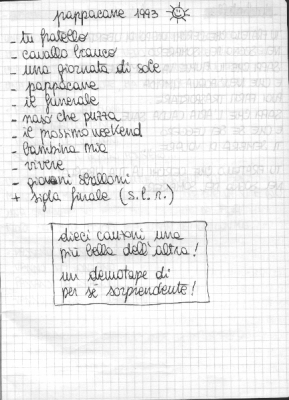 pappacane 1993
- tu fratello
- cavallo bianco
- una giornata di sole
- pappacane
- il funerale
- naso che puzza
- il prossimo weekend
- bambina mia
- vivere
- giovani sballoni
+ sigla finale (s.l.n.)
dieci canzoni una
più bella dell'altra!
un demotape di
per sè sorprendente!